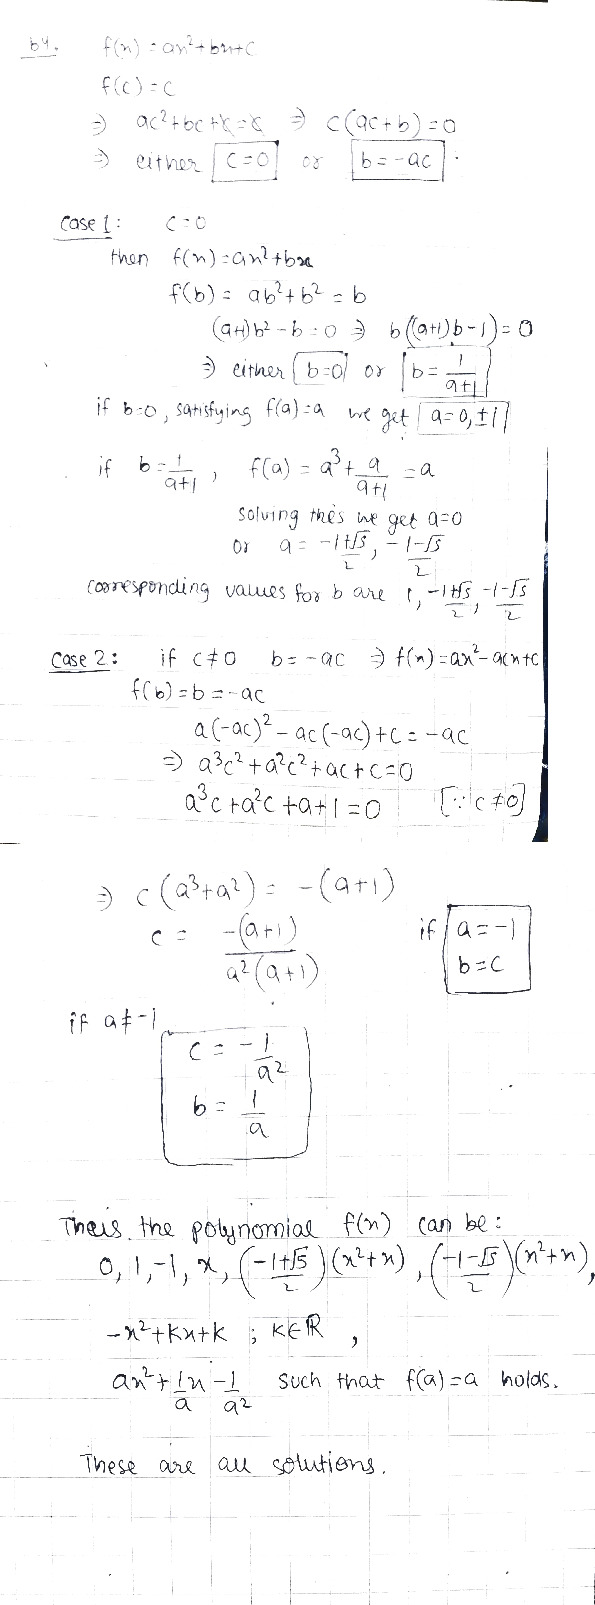 64. f(x) = ax²+bx+c
f(c) = c
⇒ ac²+bc+c=c ⇒ c(ac+b)=0
⇒ either c=0 or b=-ac.
Case 1: c=0
then f(x)=ax²+bx
f(b) = ab²+b² = b
(a+1)b²-b=0 ⇒ b((a+1)b-1)=0
⇒ either b=0 or b=1/(a+1)
if b=0, satisfying f(a)=a we get a=0,±1
if b=1/(a+1), f(a) = a³+a/(a+1) = a
solving this we get a=0
or a = (-1+√5)/2, (-1-√5)/2
corresponding values for b are 1, (-1+√5)/2, (-1-√5)/2
Case 2: if c≠0 b=-ac ⇒ f(x)=ax²-acx+c
f(b)=b=-ac
a(-ac)²-ac(-ac)+c=-ac
⇒ a³c²+a²c²+ac+c=0
a³c+a²c+a+1=0 [∵ c≠0]
⇒ c(a³+a²) = -(a+1)
c = -(a+1)/(a²(a+1)) if a=-1
b=c
if a≠-1
c = -1/a²
b = 1/a
Theis, the polynomial f(x) can be:
0, 1, -1, x, ((-1+√5)/2)(x²+x), ((-1-√5)/2)(x²+x),
-x²+kx+k ; k∈ℝ,
ax²+(1/a)x-1/a² such that f(a)=a holds.
These are all solutions.